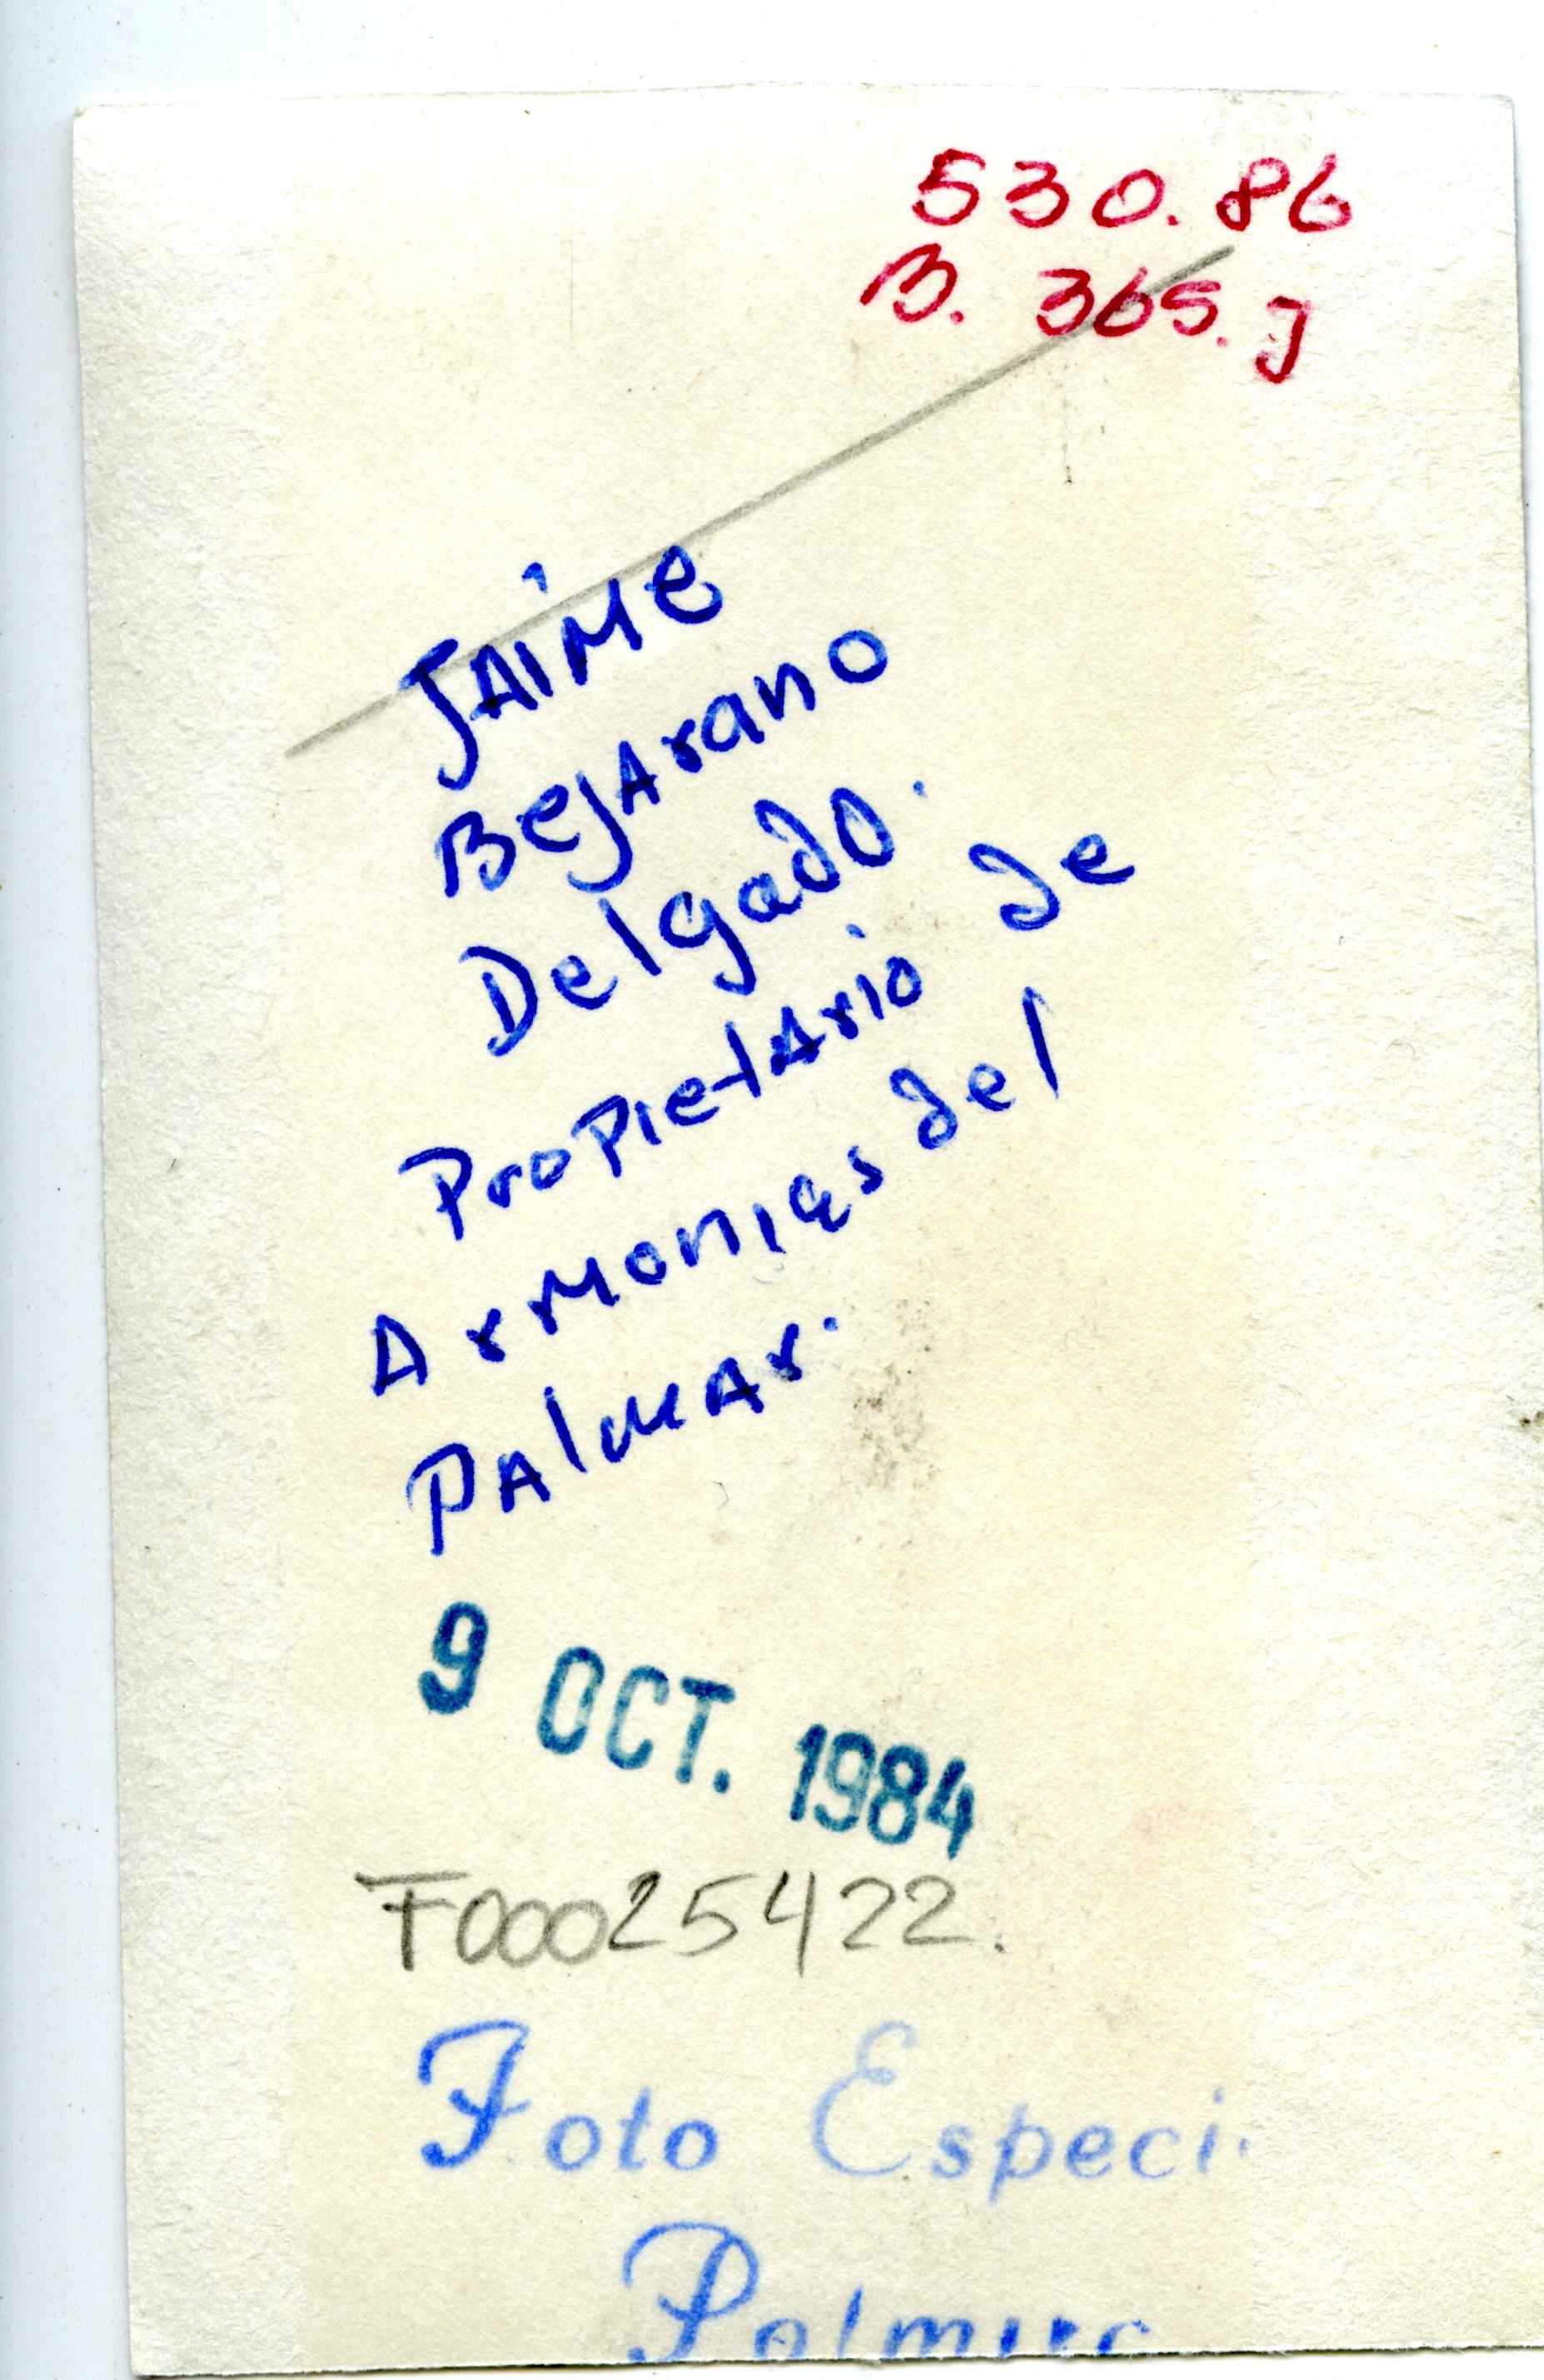 530.86
B. 365. J
JAiMe
BeJArano
Delgado.
ProPietArio de
ArMonias del
PAlMAr.
9 OCT. 1984
F00025422.
Foto